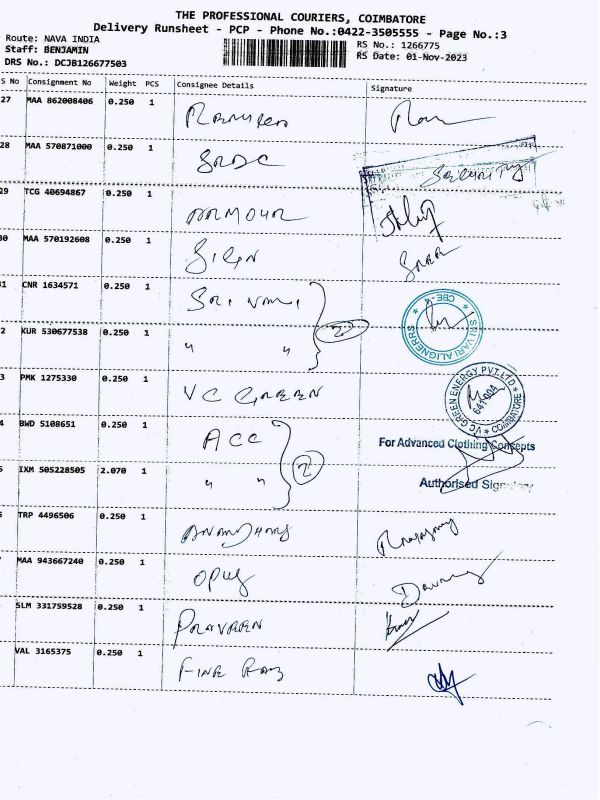 THE PROFESSIONAL COURIERS, COIMBATORE
Delivery Runsheet - PCP - Phone No.:0422-3505555 - Page No.:3
Route: NAVA INDIA
RS No.: 1266775
Staff: BENJAMIN
RS Date: 01-Nov-2023
DRS No.: DCJB126677503
S No Consignment No Weight PCS Consignee Details Signature
27 MAA 862008406 0.250 1
28 MAA 570871000 0.250 1 SRDC SECURITY
29 TCG 40694867 0.250 1 ARMOUR
30 MAA 570192608 0.250 1
31 CNR 1634571 0.250 1 SRI VARI 2
CBE-4 SRI VARI ALIGNERRS
2 KUR 530677538 0.250 1 " "
3 PMK 1275330 0.250 1 VC GREEN
VC GREEN ENERGY PVT.LTD COIMBATORE 641-004
4 BWD 5108651 0.250 1 ACC 2
For Advanced Clothing Concepts
5 IXM 505228505 2.070 1 " "
Authorised Signatory
TRP 4496506 0.250 1
MAA 943667240 0.250 1 OPUS
SLM 331759528 0.250 1 PRAVEEN
VAL 3165375 0.250 1 FINE